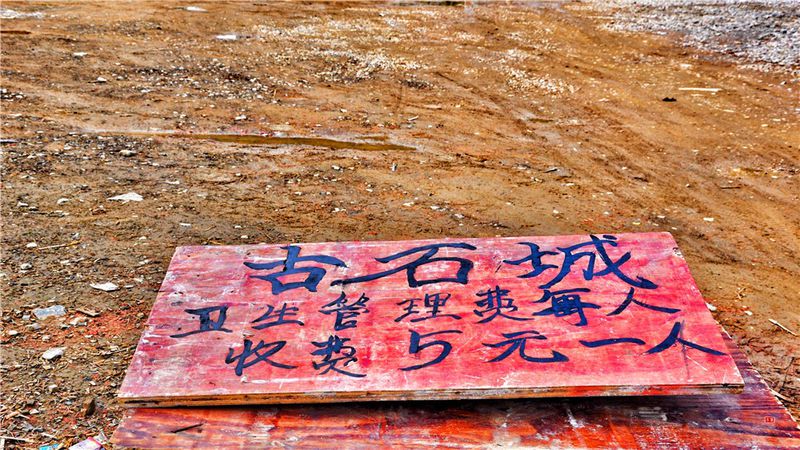 古石城
卫生管理费每人
收费5元一人